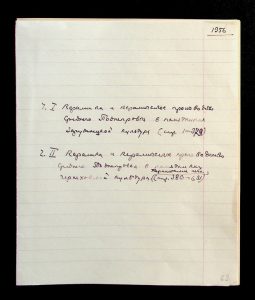 1956
Ч. I Керамика и керамическое производство
Среднего Поднепровья в памятниках
Зарубинецкой культуры (стр. 1–
Ч. II Керамика и керамическое производство
Среднего Поднепровья в памятниках
черняховской культуры (стр. 380–